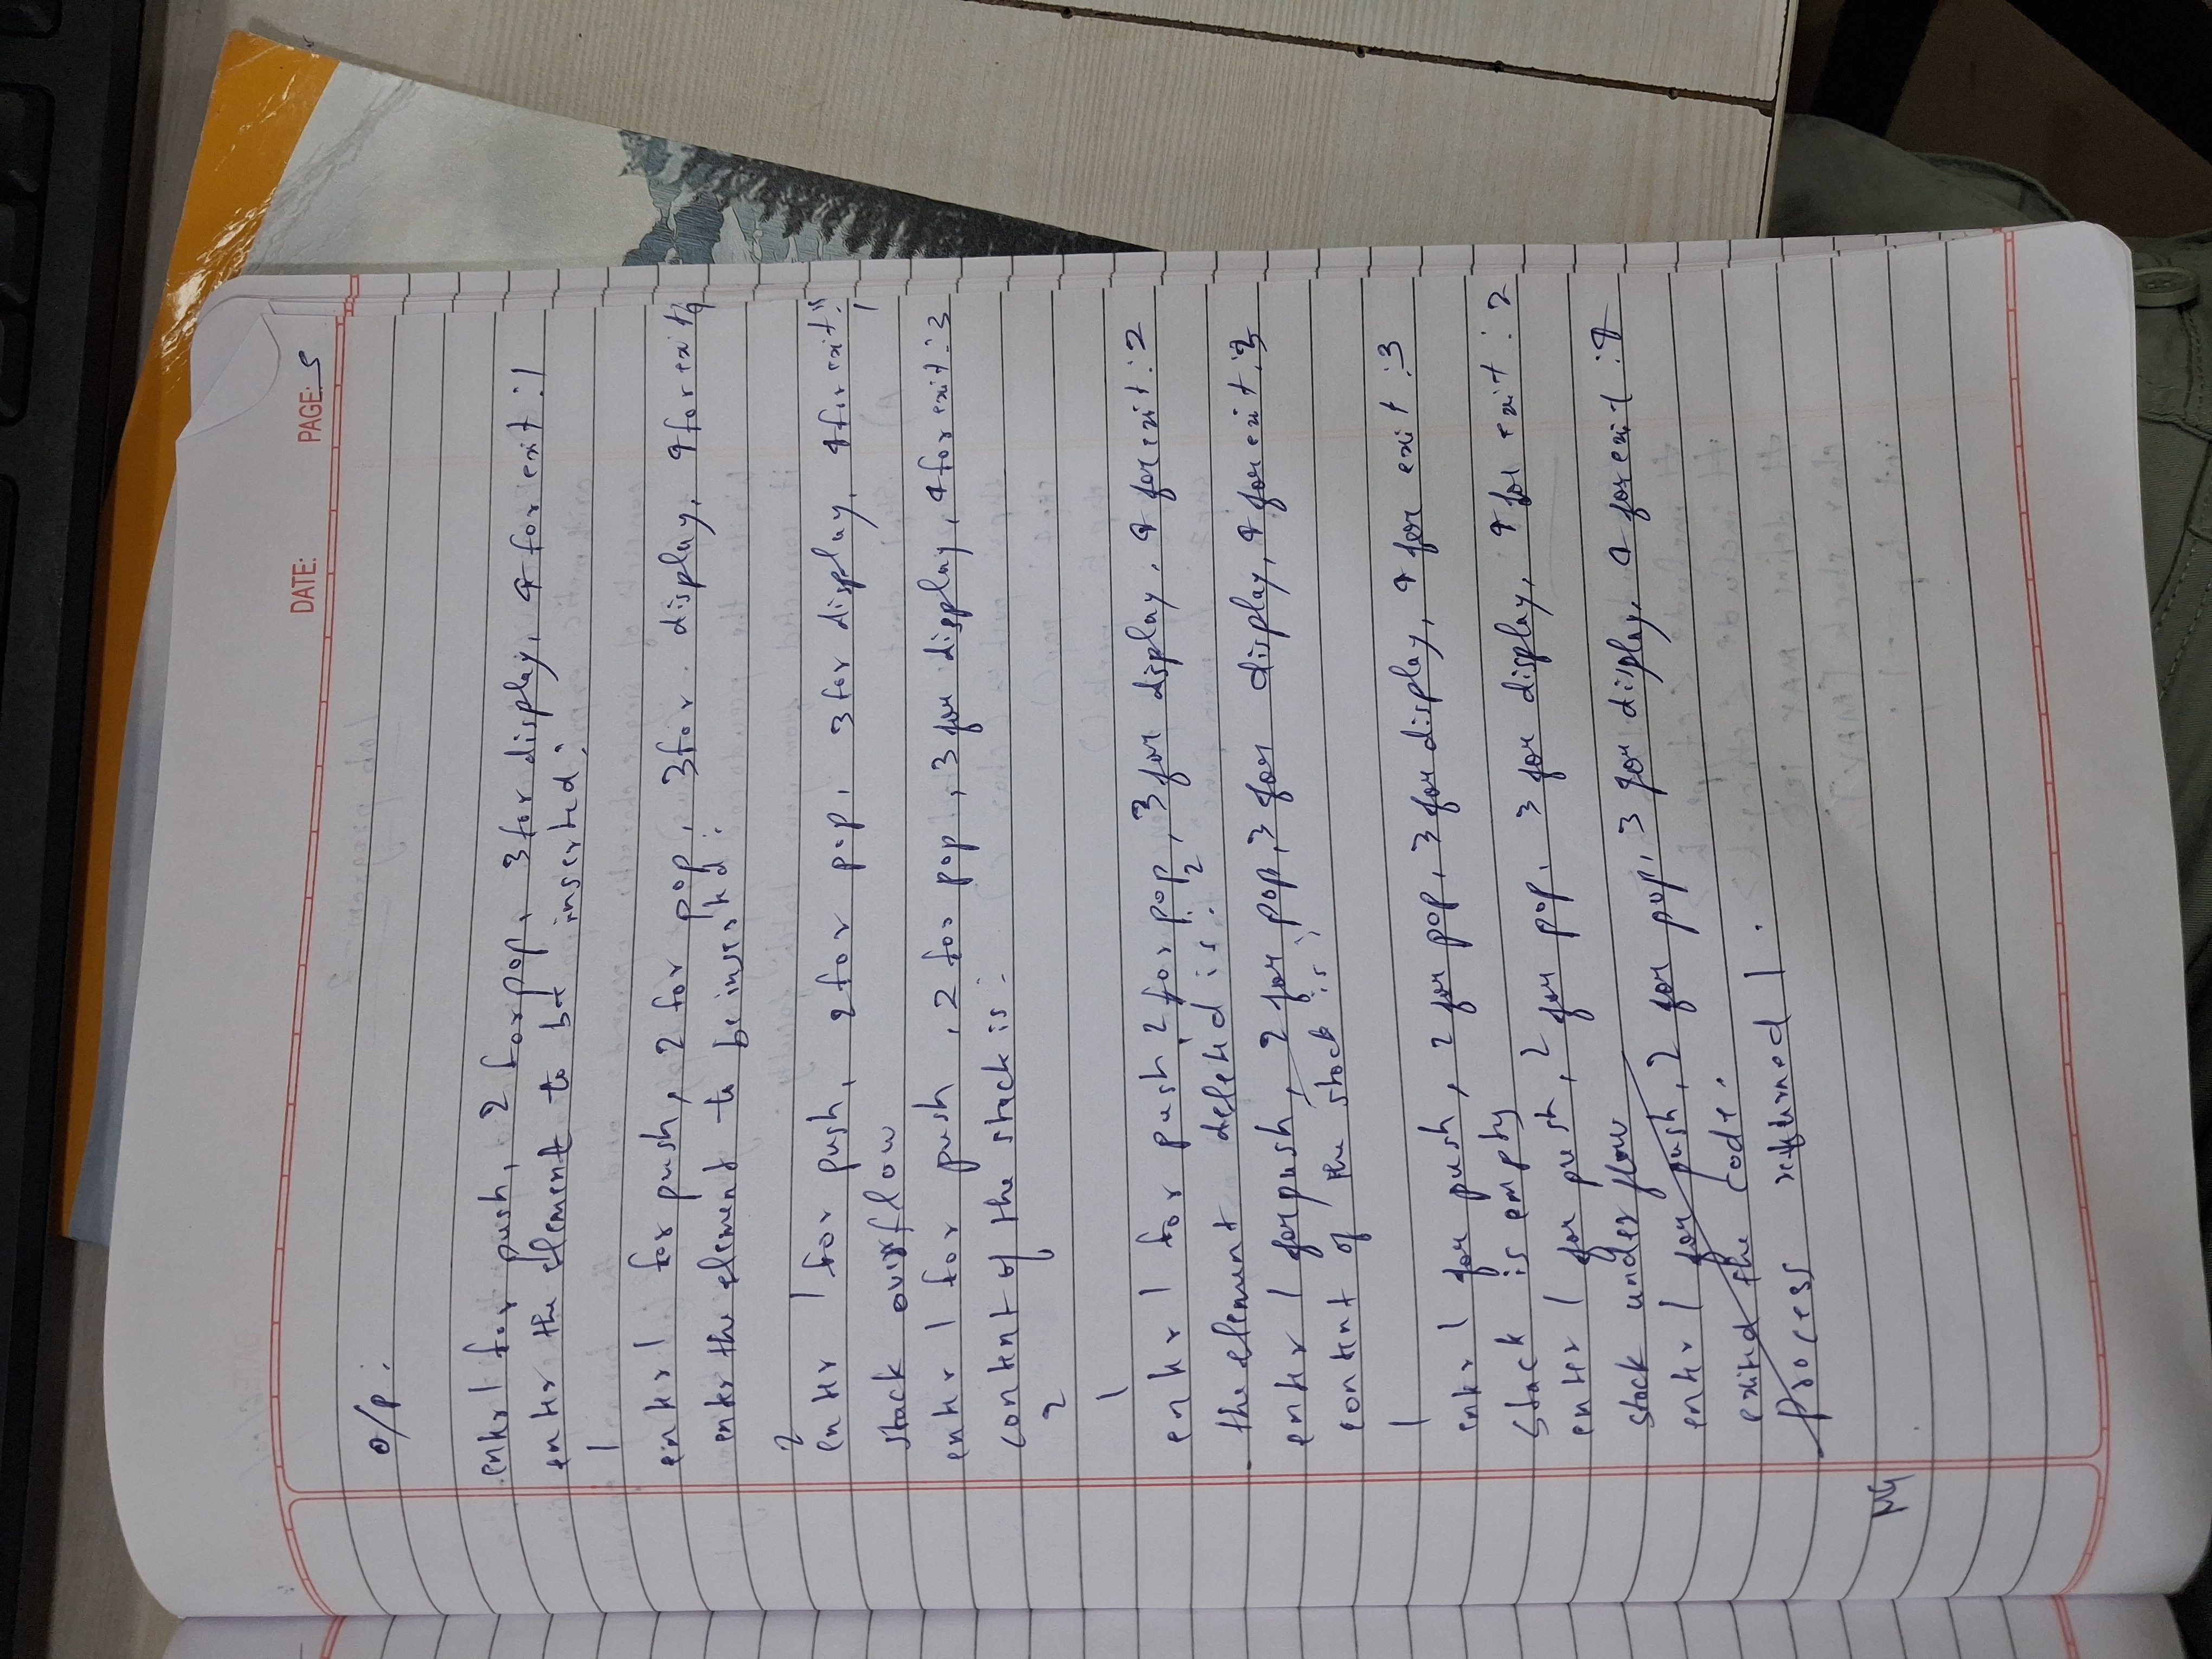 DATE: PAGE: 5
o/p :
enter 1 for push, 2 for pop, 3 for display, 4 for exit : 1
enter the element to be inserted :
1
enter 1 for push, 2 for pop, 3 for display, 4 for exit
enter the element to be inserted :
2
enter 1 for push, 2 for pop, 3 for display, 4 for exit :
1
stack overflow
enter 1 for push , 2 for pop , 3 for display , 4 for exit : 3
content of the stack is :
2
1
enter 1 for push, 2 for pop, 3 for display, 4 for exit : 2
the element deleted is : 2
enter 1 for push, 2 for pop, 3 for display, 4 for exit : 3
content of the stack is :
1
enter 1 for push, 2 for pop, 3 for display, 4 for exit : 3
Stack is empty
enter 1 for push, 2 for pop, 3 for display, 4 for exit : 2
stack underflow
enter 1 for push, 2 for pop, 3 for display, 4 for exit : 4
exited the code.
Process returned 1 .